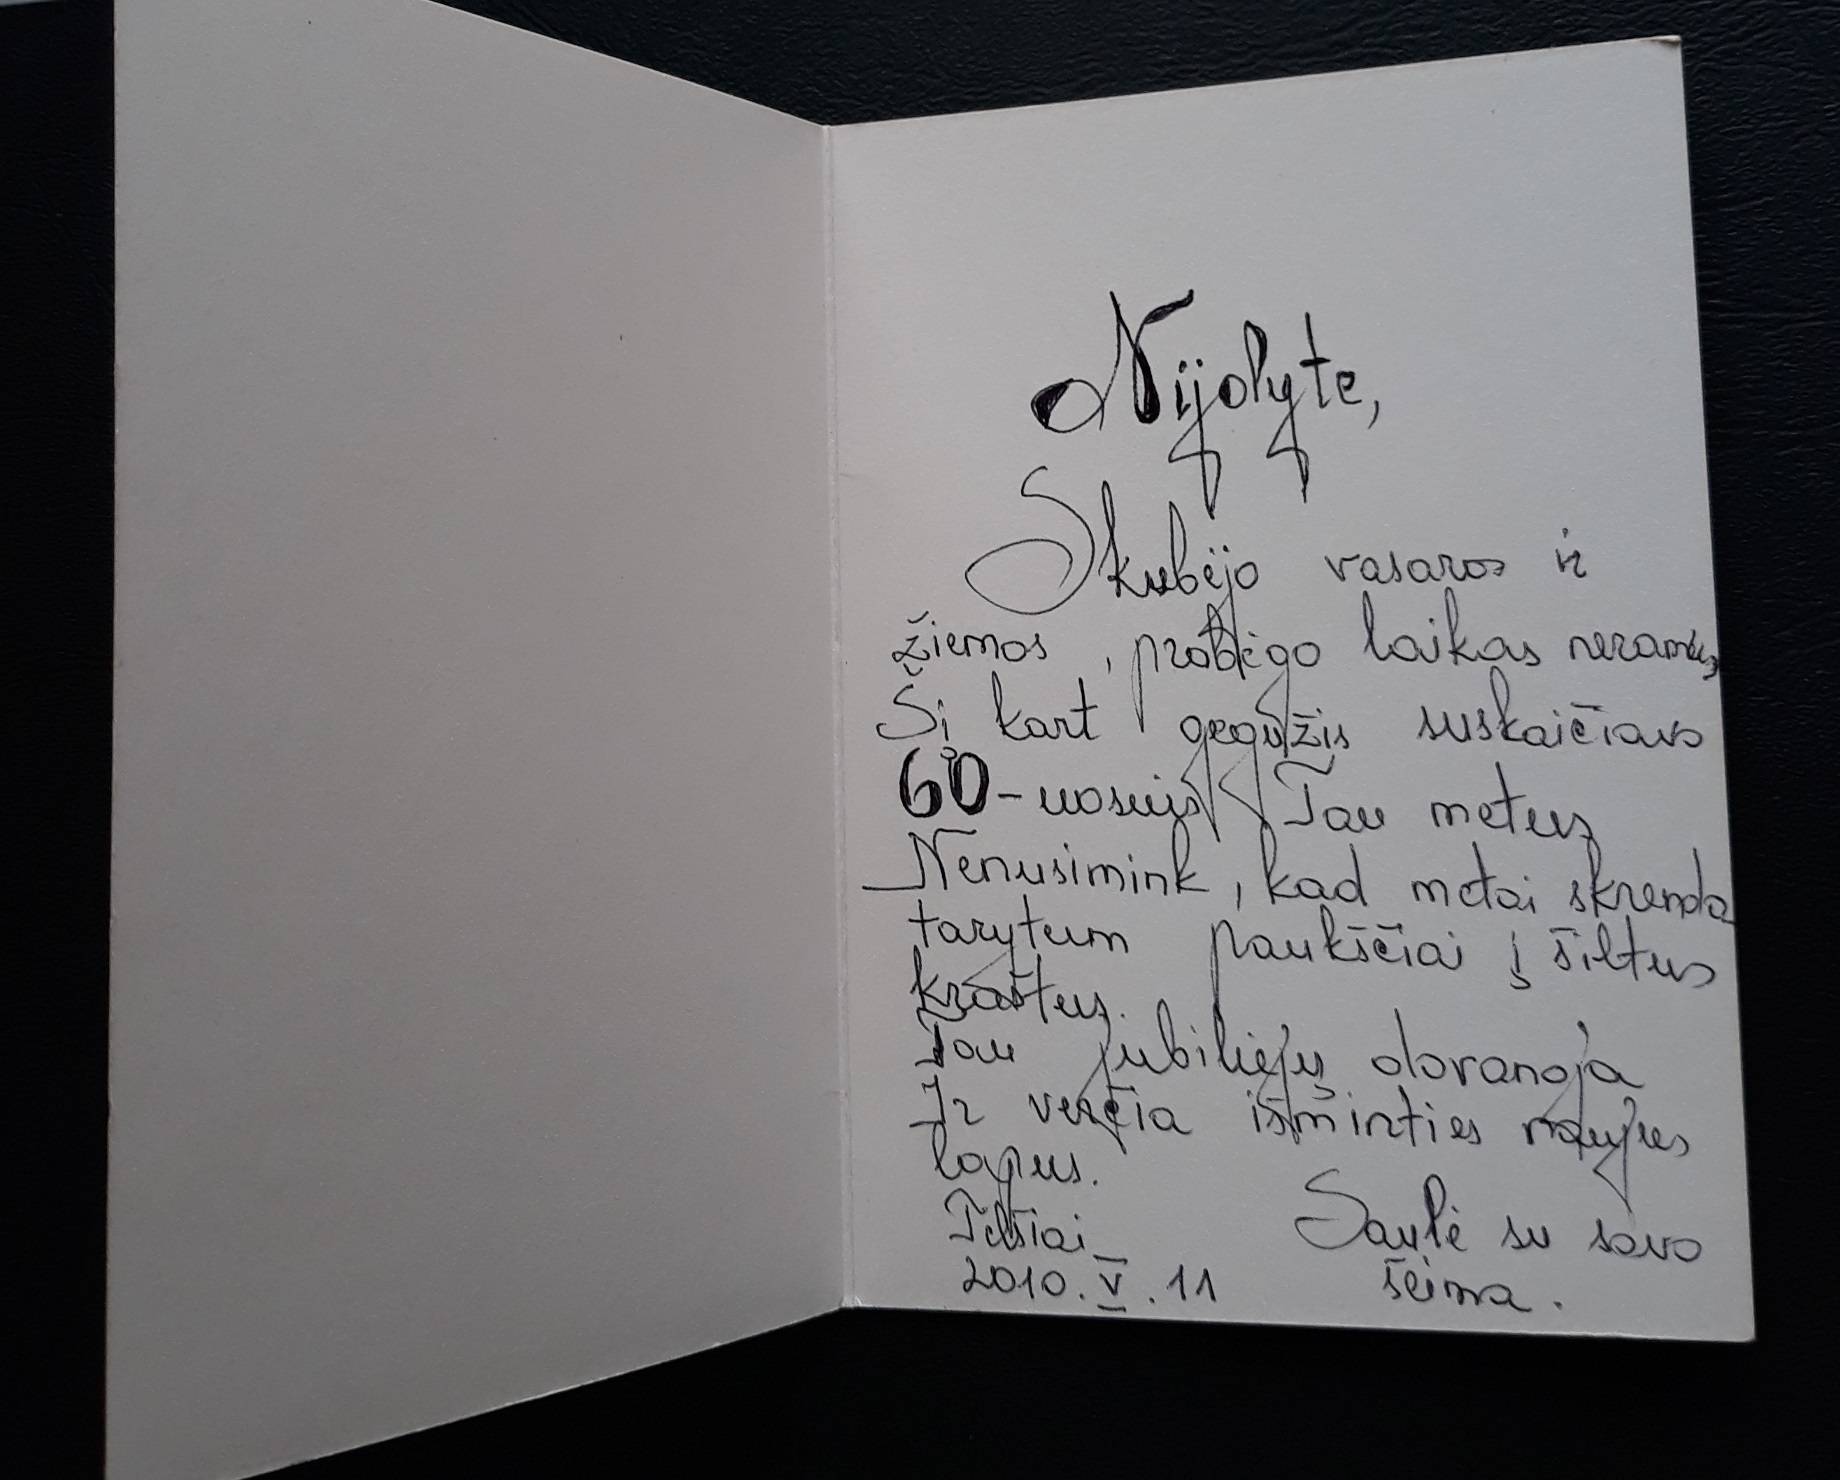 Nijolyte,
Skubėjo vasaros ir
žiemos, prabėgo laikas neramus,
Šį kart gegužis suskaičiavo
60-uosius Tau metus
Nenusimink, kad metai skrenda
tarytum paukščiai į šiltus
kraštus.
Tau jubiliejų dovanoja
Ir verčia išminties naujus
lapus.
Telšiai Saulė su savo
2010.V.11 šeima.